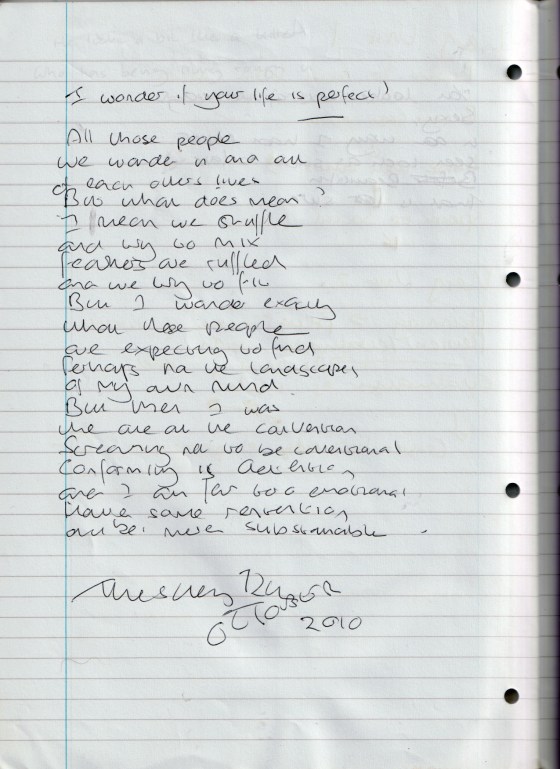 I wonder if your life is perfect?
All those people
we wander in and out
of each others lives
But what does mean?
I mean we shuffle
and try to mix
feathers are ruffled
and we try to fit
But I wonder exactly
what these people
are expecting to find
Perhaps the landscapes
of my own mind
But then I was
the one at the convention
Screaming not to be conventional
Conforming is
and I am far too emotional
Have some
but never substainable.
Tuesday 12th
October
2010